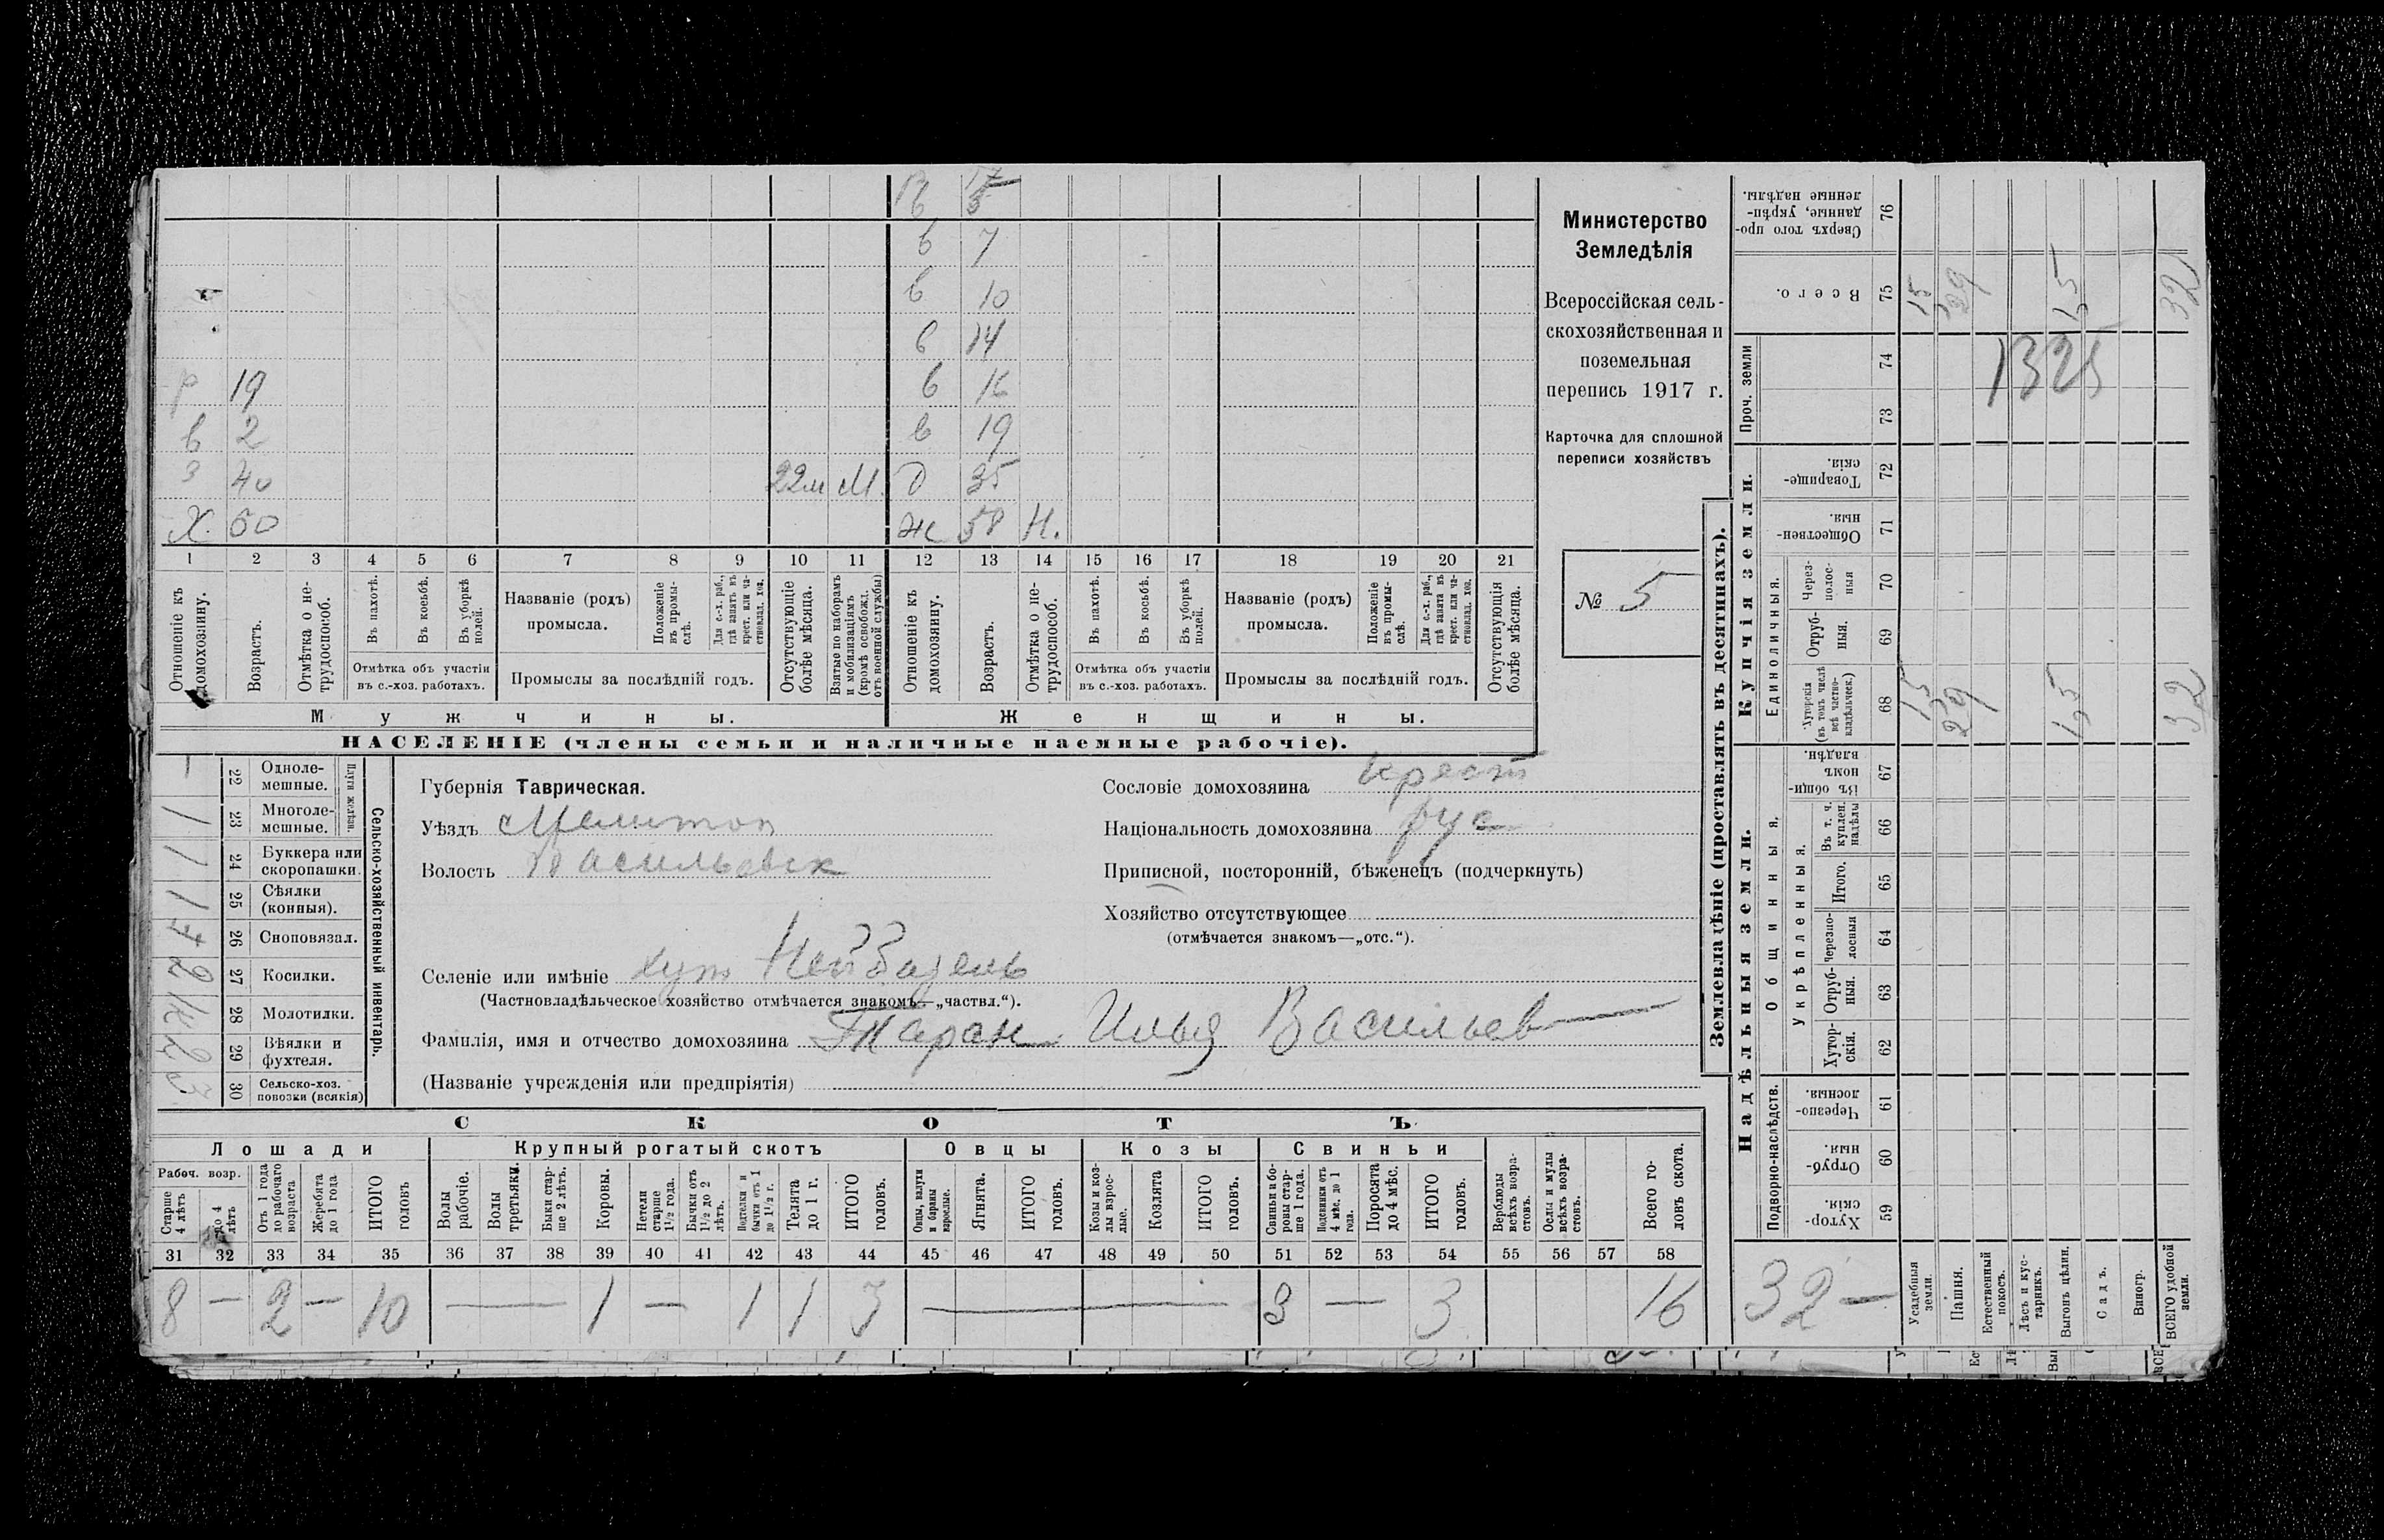 В 17 5
в 7
в 10
в 14
р 19 в 16
в 2 в 19
З 40 22м М. д 35
Х. 60 ж 58 Н.
1 2 3 4 5 6 7 8 9 10 11 12 13 14 15 16 17 18 19 20 21
Отношеніе къ домохозяину.
Возрастъ.
Отмѣтка о не-
трудоспособ.
Въ пахотѣ.
Въ косьбѣ.
Въ уборкѣ полей.
Отмѣтка объ участіи
въ с.-хоз. работахъ.
Названіе (родъ)
промысла.
Положеніе въ промы-
слѣ.
Для с.-х. раб., гдѣ занятъ въ крест. или ча-
стновлад. хоз.
Промыслы за послѣдній годъ.
Отсутствующіе болѣе мѣсяца.
Взятые по наборамъ и мобилизаціямъ (кромѣ освобожд. отъ военной службы)
Отношеніе къ домохозяину.
Возрастъ.
Отмѣтка о не-
трудоспособ.
Въ пахотѣ.
Въ косьбѣ.
Въ уборкѣ полей.
Отмѣтка объ участіи
въ с.-хоз. работахъ.
Названіе (родъ)
промысла.
Положеніе въ промы-
слѣ.
Для с.-х. раб., гдѣ занята въ крест. или ча-
стновлад. хоз.
Промыслы за послѣдній годъ.
Отсутствующія болѣе мѣсяца.
Мужчины. Женщины.
НАСЕЛЕНІЕ (члены семьи и наличные наемные рабочіе).
Министерство
Земледѣлія
Всероссійская сель-
скохозяйственная и
поземельная
перепись 1917 г.
Карточка для сплошной
переписи хозяйствъ
№ 5
Сельско-хозяйственный инвентарь.
Плуги желѣзн.
— 22 Одноле-
мешные.
1 23 Многоле-
мешные.
1 24 Буккера или
скоропашки.
1 25 Сѣялки
(конныя).
26 Сноповязал.
2 27 Косилки.
28 Молотилки.
2 29 Вѣялки и
фухтеля.
3 30 Сельско-хоз.
повозки (всякія)
Губернія Таврическая.
Уѣздъ Мелитоп
Волость Васильевск
Селеніе или имѣніе хут Нейбазель
(Частновладѣльческое хозяйство отмѣчается знакомъ—„частвл.“).
Фамилія, имя и отчество домохозяина Таран Илья Васильев
(Названіе учрежденія или предпріятія)
Сословіе домохозяина крест
Національность домохозяина рус
Приписной, посторонній, бѣженецъ (подчеркнуть)
Хозяйство отсутствующее
(отмѣчается знакомъ—„отс.“).
СКОТЪ
Лошади Крупный рогатый скотъ Овцы Козы Свиньи
Рабоч. возр.
Старше 4 лѣтъ
до 4 лѣтъ
Отъ 1 года до рабочаго возраста
Жеребята до 1 года
ИТОГО головъ
Волы рабочіе.
Волы третьяки.
Быки стар-
ше 2 лѣтъ.
Коровы.
Нетели старше 1½ года.
Бычки отъ 1½ до 2 лѣтъ.
Подтелки и бычки отъ 1 до 1½ г.
Телята до 1 г.
ИТОГО головъ.
Овцы, валухи и бараны взрослые.
Ягнята.
ИТОГО головъ.
Козы и коз-
лы взрос-
лые.
Козлята
ИТОГО головъ.
Свиньи и бо-
ровы стар-
ше 1 года.
Подсвинки отъ 4 мѣс. до 1 года.
Поросята до 4 мѣс.
ИТОГО головъ.
Верблюды всѣхъ возра-
стовъ.
Ослы и мулы всѣхъ возра-
стовъ.
Всего го-
ловъ скота.
31 32 33 34 35 36 37 38 39 40 41 42 43 44 45 46 47 48 49 50 51 52 53 54 55 56 57 58
8 — 2 — 10 — 1 — 1 1 3 — 3 — 3 16
Землевладѣніе (проставлять въ десятинахъ).
Купчія земли.
Надѣльныя земли.
Сверхъ того про-
данные, укрѣп-
ленные надѣлы. 76
Всего. 75 1,5 29 1,5 32
Проч. земли 74 73 1325
Товарище-
скія. 72
Обществен-
ныя. 71
Единоличныя.
Через-
полос-
ныя 70
Отруб-
ныя. 69
Хуторскія (въ томъ числѣ всѣ частно-
владѣльческ.) 68 1,5 29 1,5 32
Общинныя.
Въ общи-
номъ владѣн. 67
Укрѣпленныя.
Въ т. ч. куплен. надѣлы 66
Итого. 65
Черезпо-
лосныя 64
Отруб-
ныя. 63
Хутор-
скія. 62
Подворно-наслѣдств.
Черезпо-
лосныя. 61
Отруб-
ныя. 60
Хутор-
скія. 59
32 —
Усадебныя земли.
Пашня.
Естественный покосъ.
Лѣсъ и кус-
тарникъ.
Выгонъ цѣлин.
Садъ.
Виногр.
ВСЕГО удобной земли.